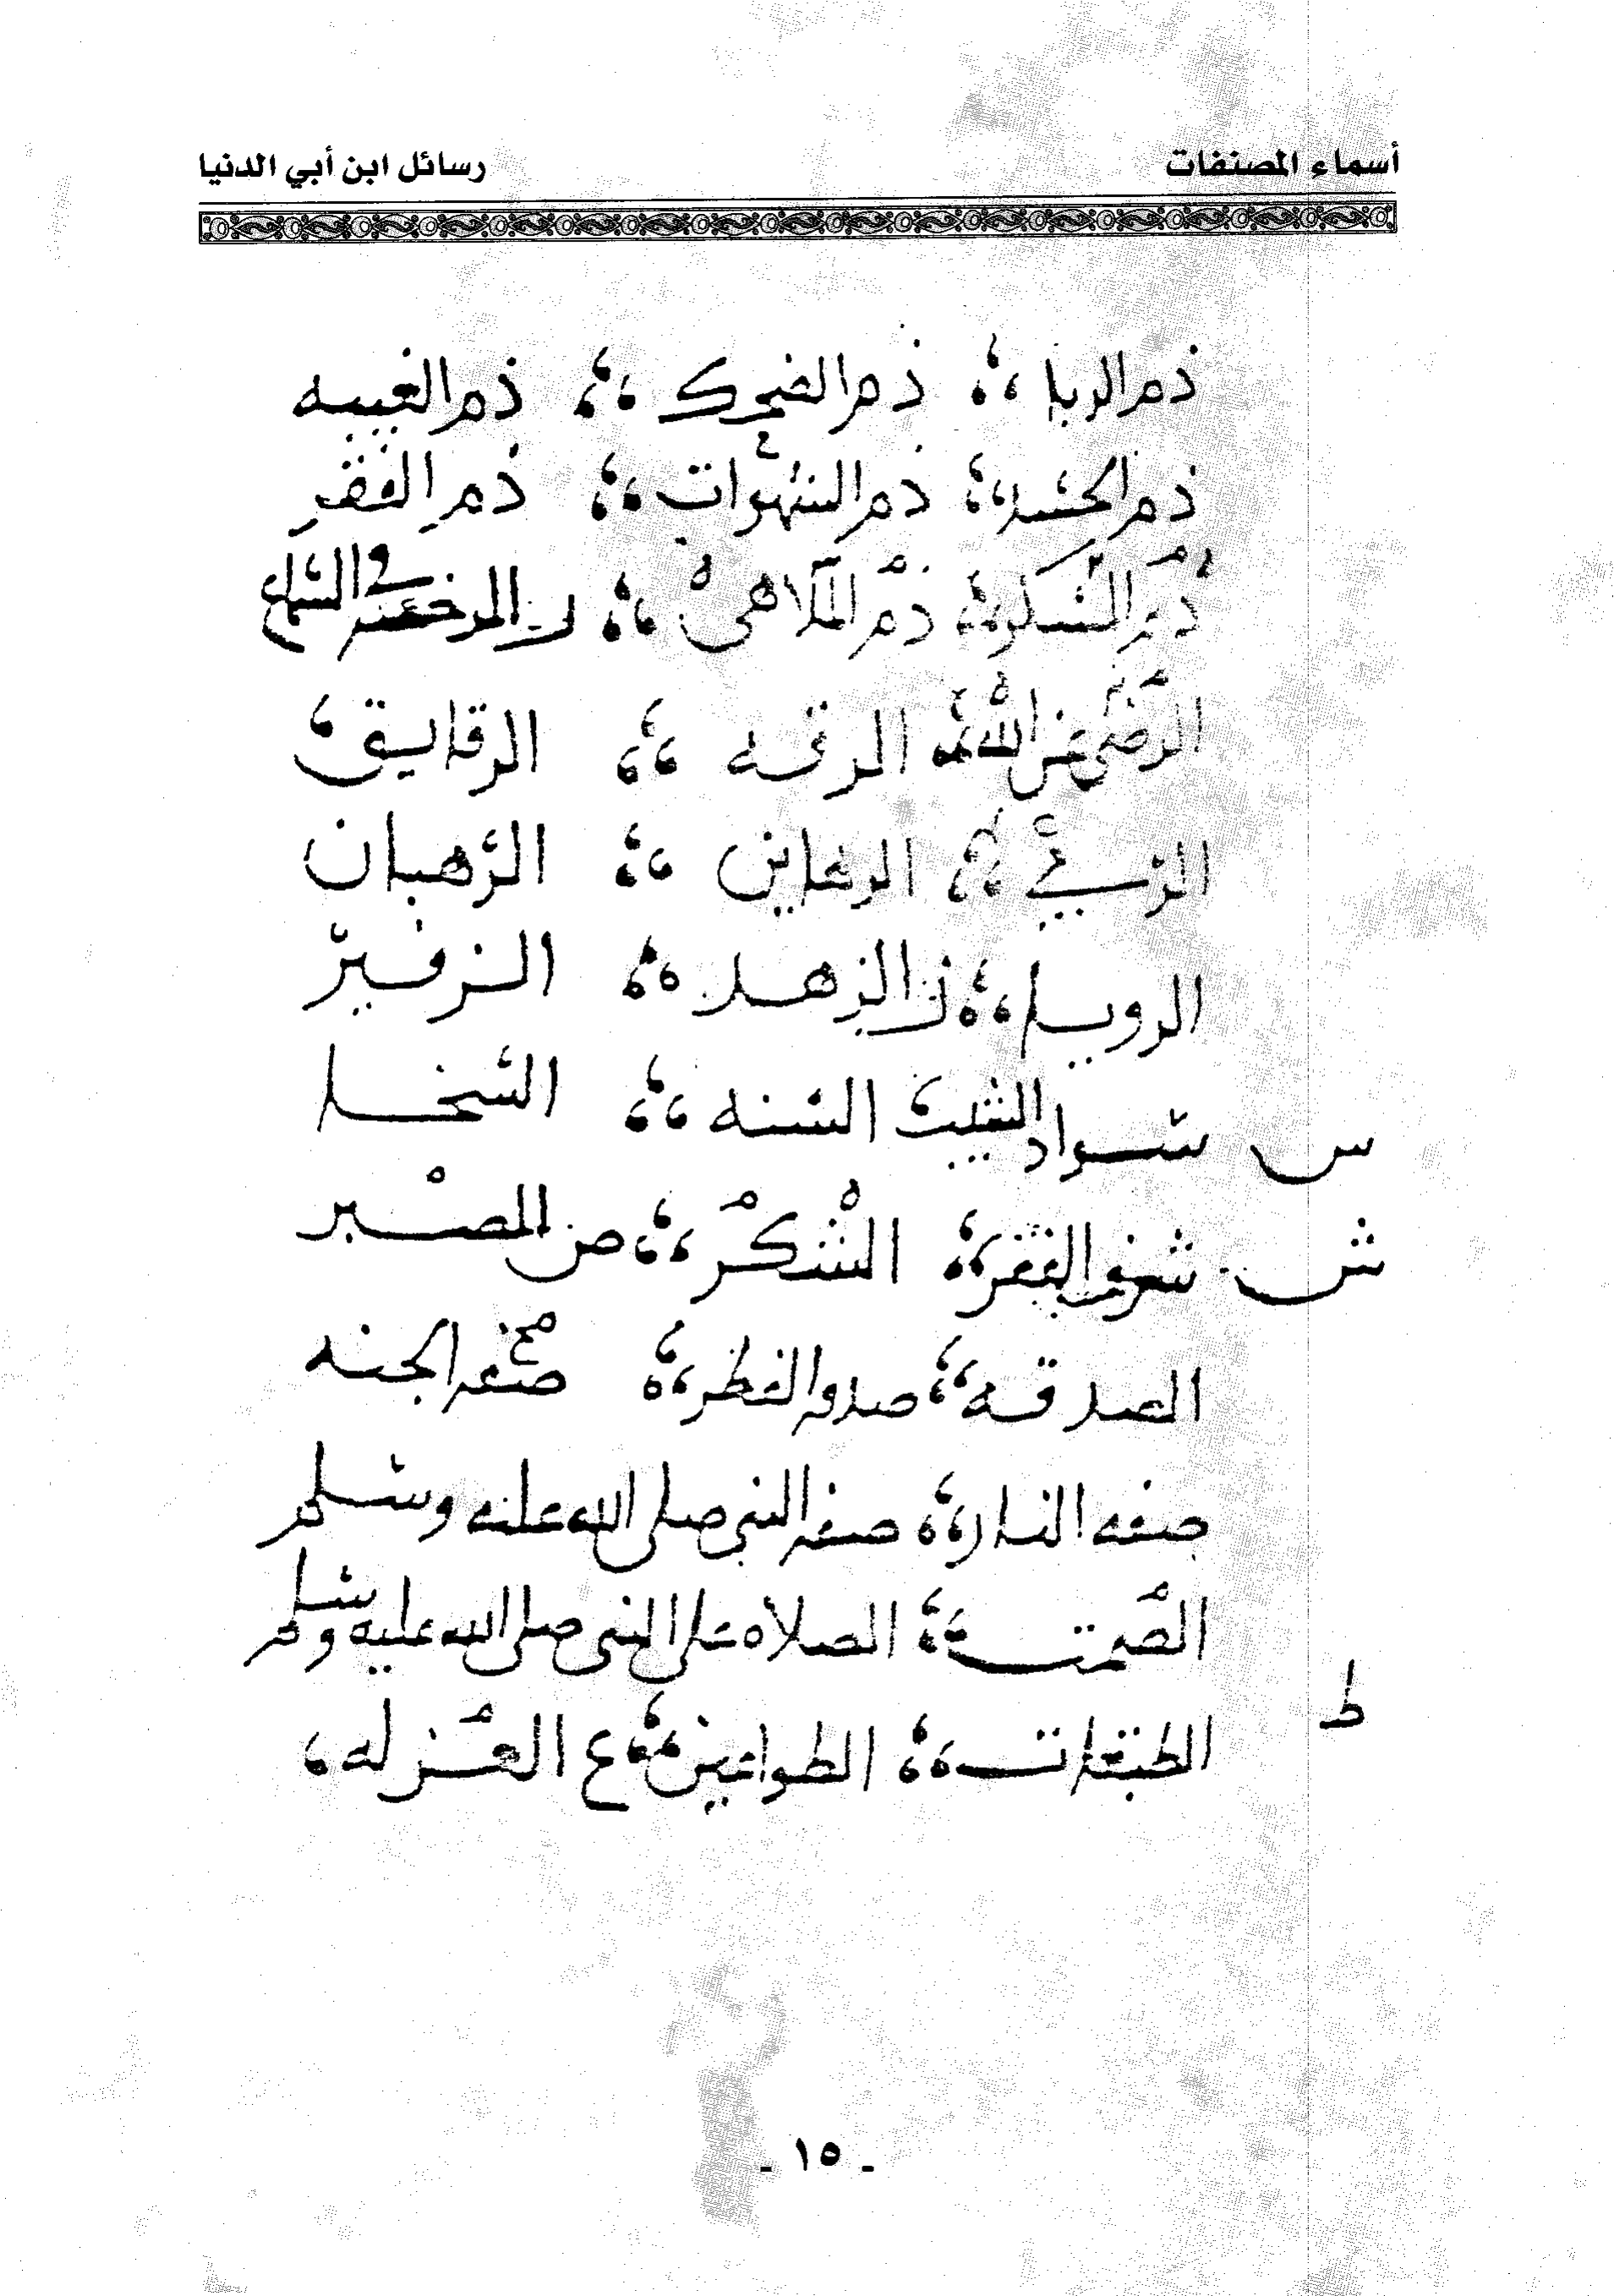 أسماء المصنفات رسائل ابن أبي الدنيا
ذم الربا ذم الضحك ذم الغيبه
ذم الحسد ذم الشهوات ذم الفقر
ذم المسكر ذم الملاهى ر الرخصه في السماع
الرضى عن الله الرقه الرقايق
الرمي الرهاين الرهبان
الرويا ز الزهد الزفير
س سواد الشيب السنه السخا
ش شرف الفقر الشكر ص الصبر
الصدقه صدقه الفطر صفه الجنه
صفه النار صفه النبي صلى الله عليه وسلم
الصمت الصلاه على النبي صلى الله عليه وسلم
ط
الطبقات الطواعين ع العزله
- ١٥ -